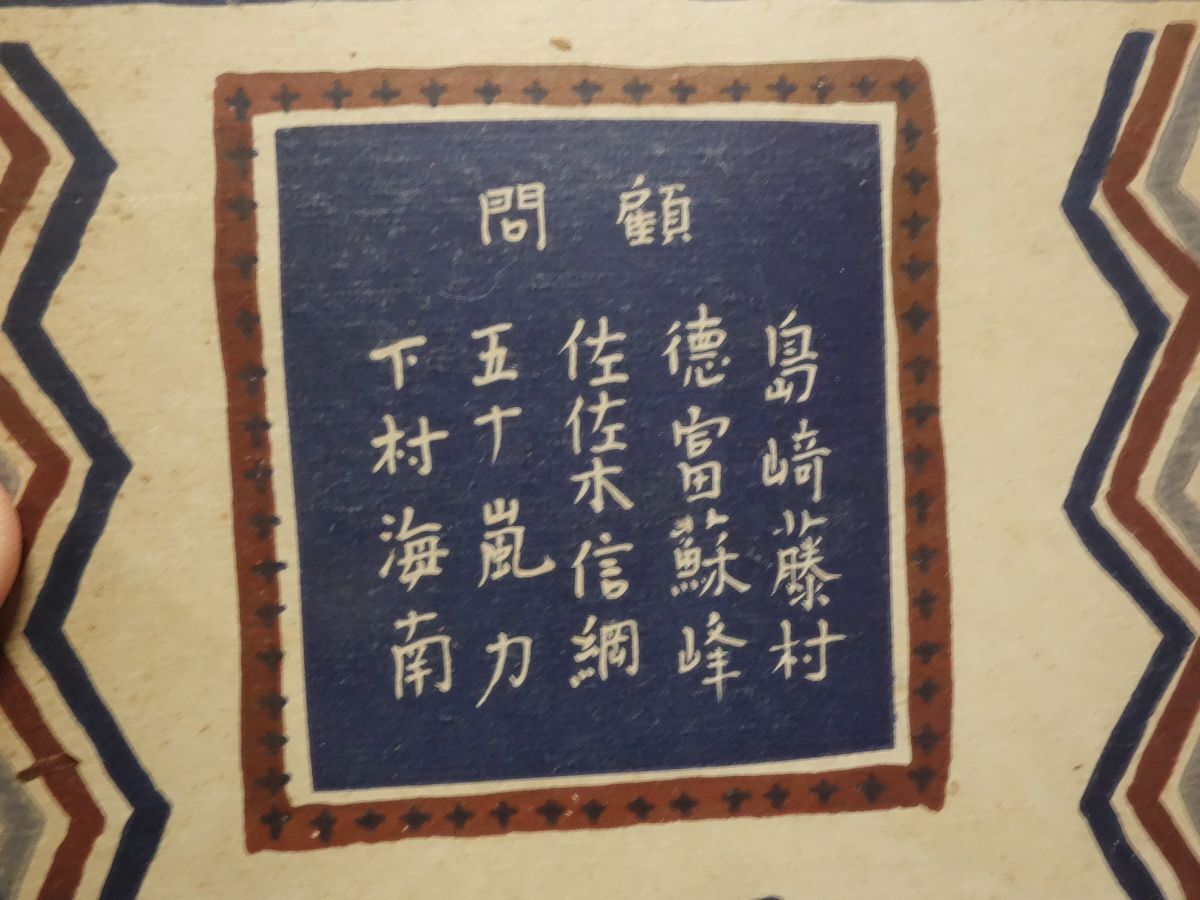 顧問
島崎藤村
德富蘇峰
佐佐木信綱
五十嵐力
下村海南